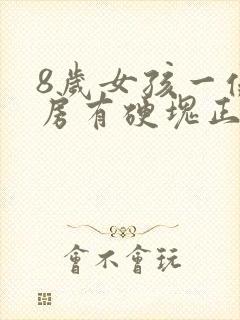 8歲女孩一側
房有硬塊正
會不會玩